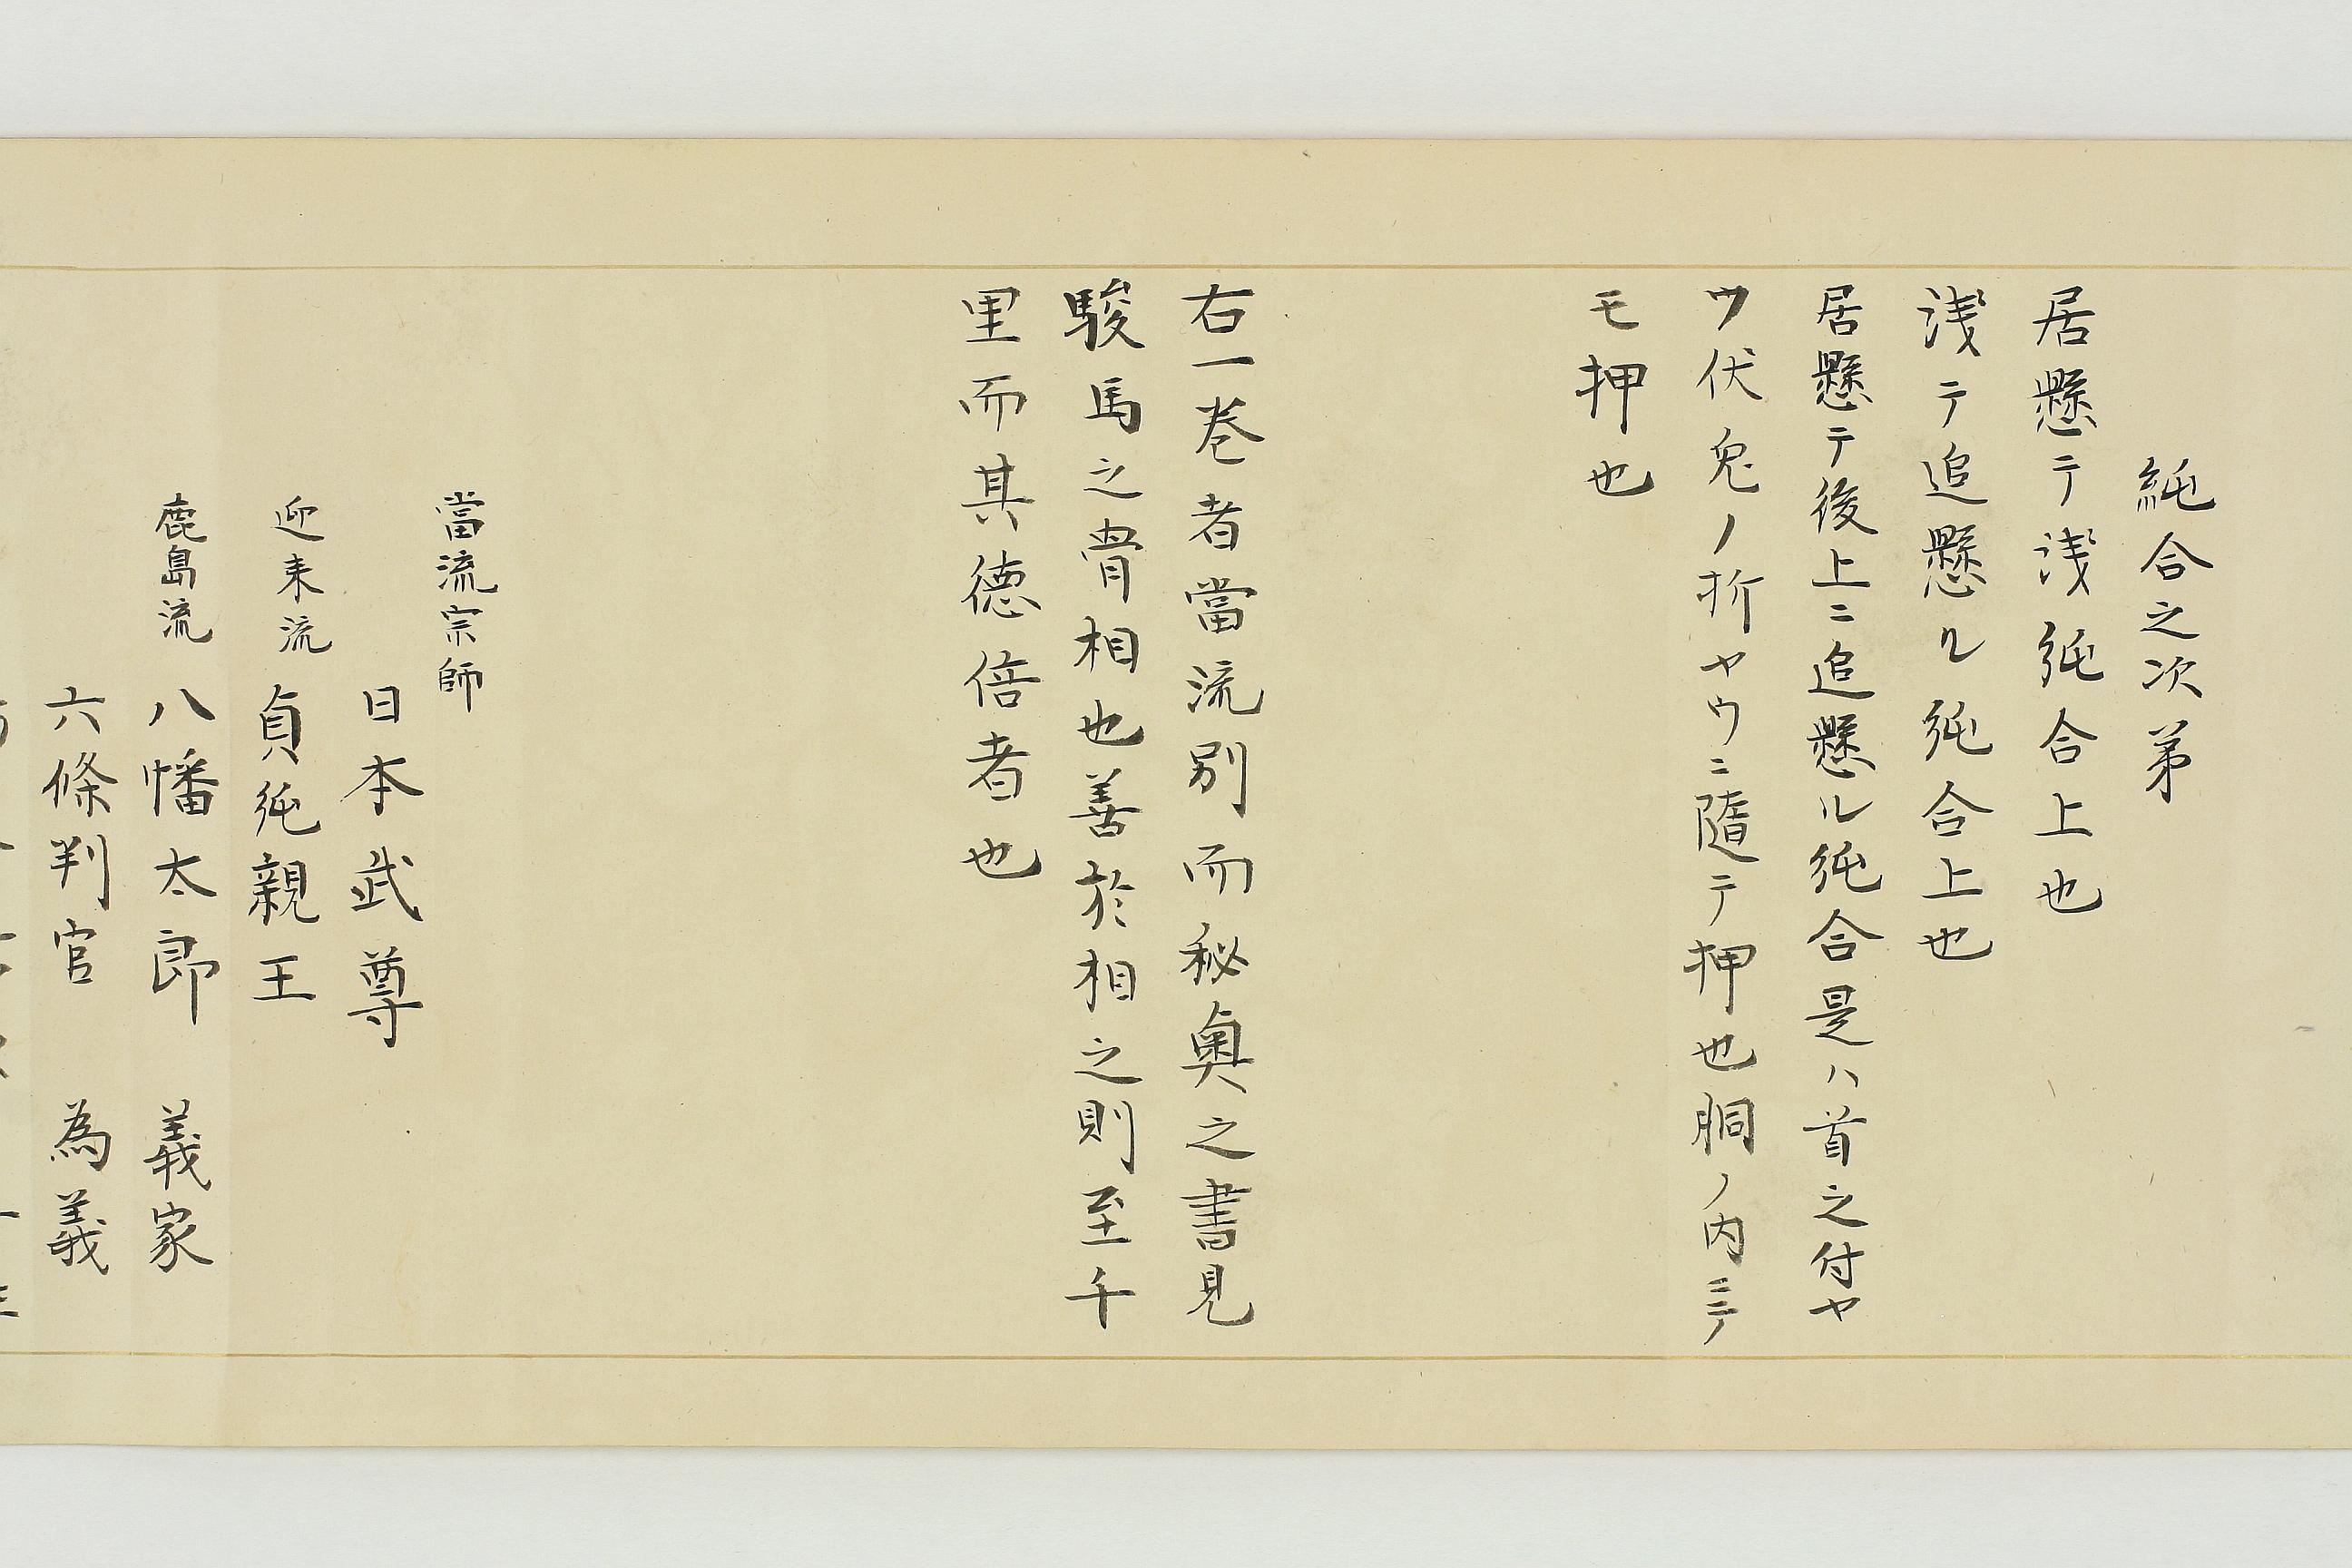 純合之次第
居懸テ浅純合上也
浅テ追懸ル純合上也
居懸テ後上ニ追懸ル純合是ハ首之付ヤ
ウ伏兔ノ折ヤウニ随テ押也胴ノ内ニテ
モ押也
右一巻者當流別而秘奥之書見
駿馬之骨相也善於相之則至千
里而其徳倍者也
當流宗師
日本武尊
迎来流 貞純親王
鹿島流 八幡太郎 義家
六條判官 為義